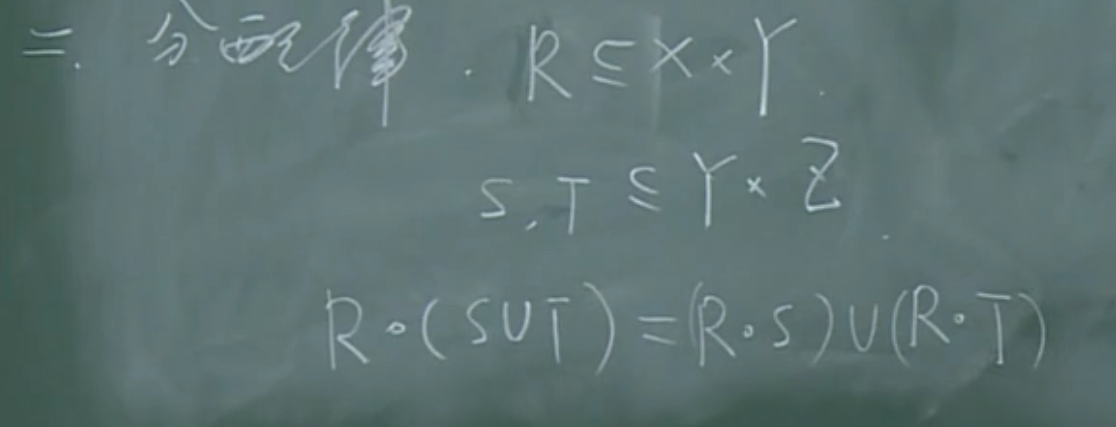 二. 分配律. R ⊆ X × Y.
S, T ⊆ Y × Z.
R∘(S∪T) = (R∘S)∪(R∘T)